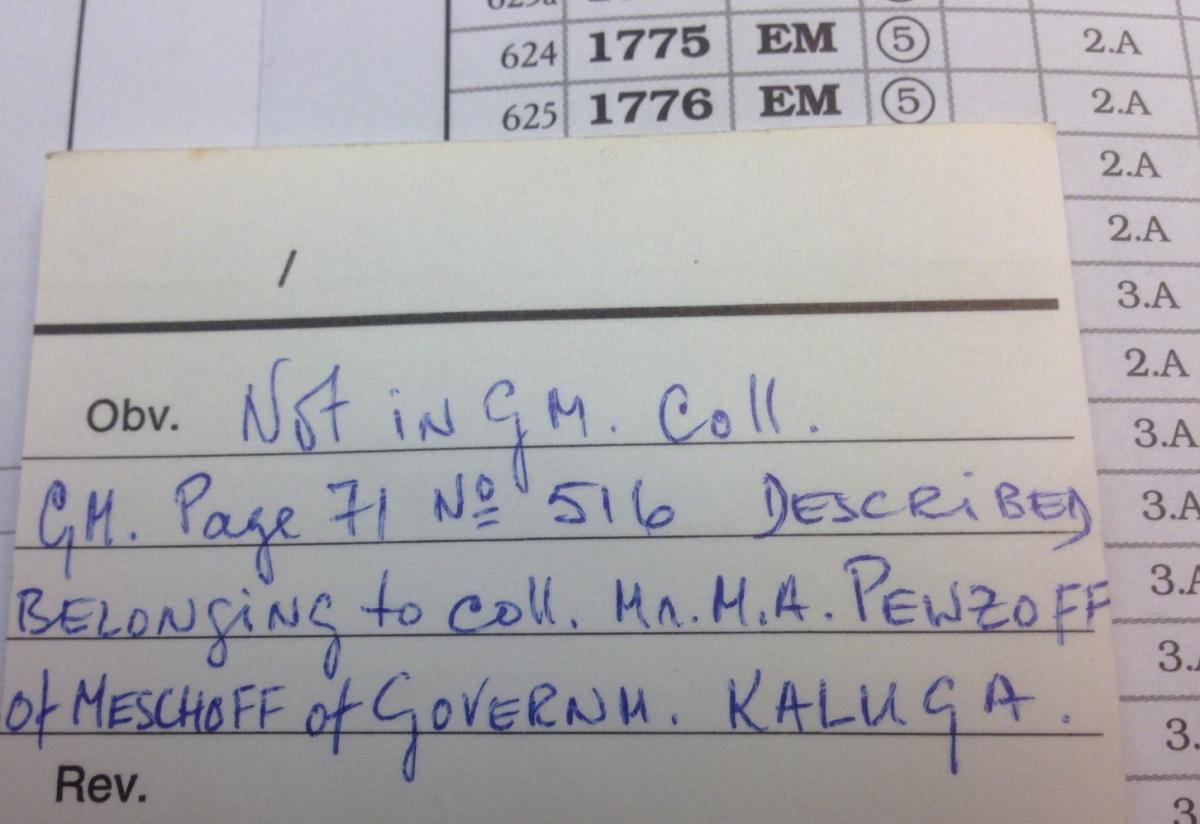 624 1775 EM ⑤ 2.A
625 1776 EM ⑤ 2.A
2.A
2.A
3.A
2.A
3.A
3.A
3.A
3.
3.
3
/
Obv. Not in GM. Coll.
GM. Page 71 Nº 516 DESCRiBED
BELONGiNG to coll. Mr. M.A. PEWZOFF
of MESCHOFF of GOVERNM. KALUGA.
Rev.